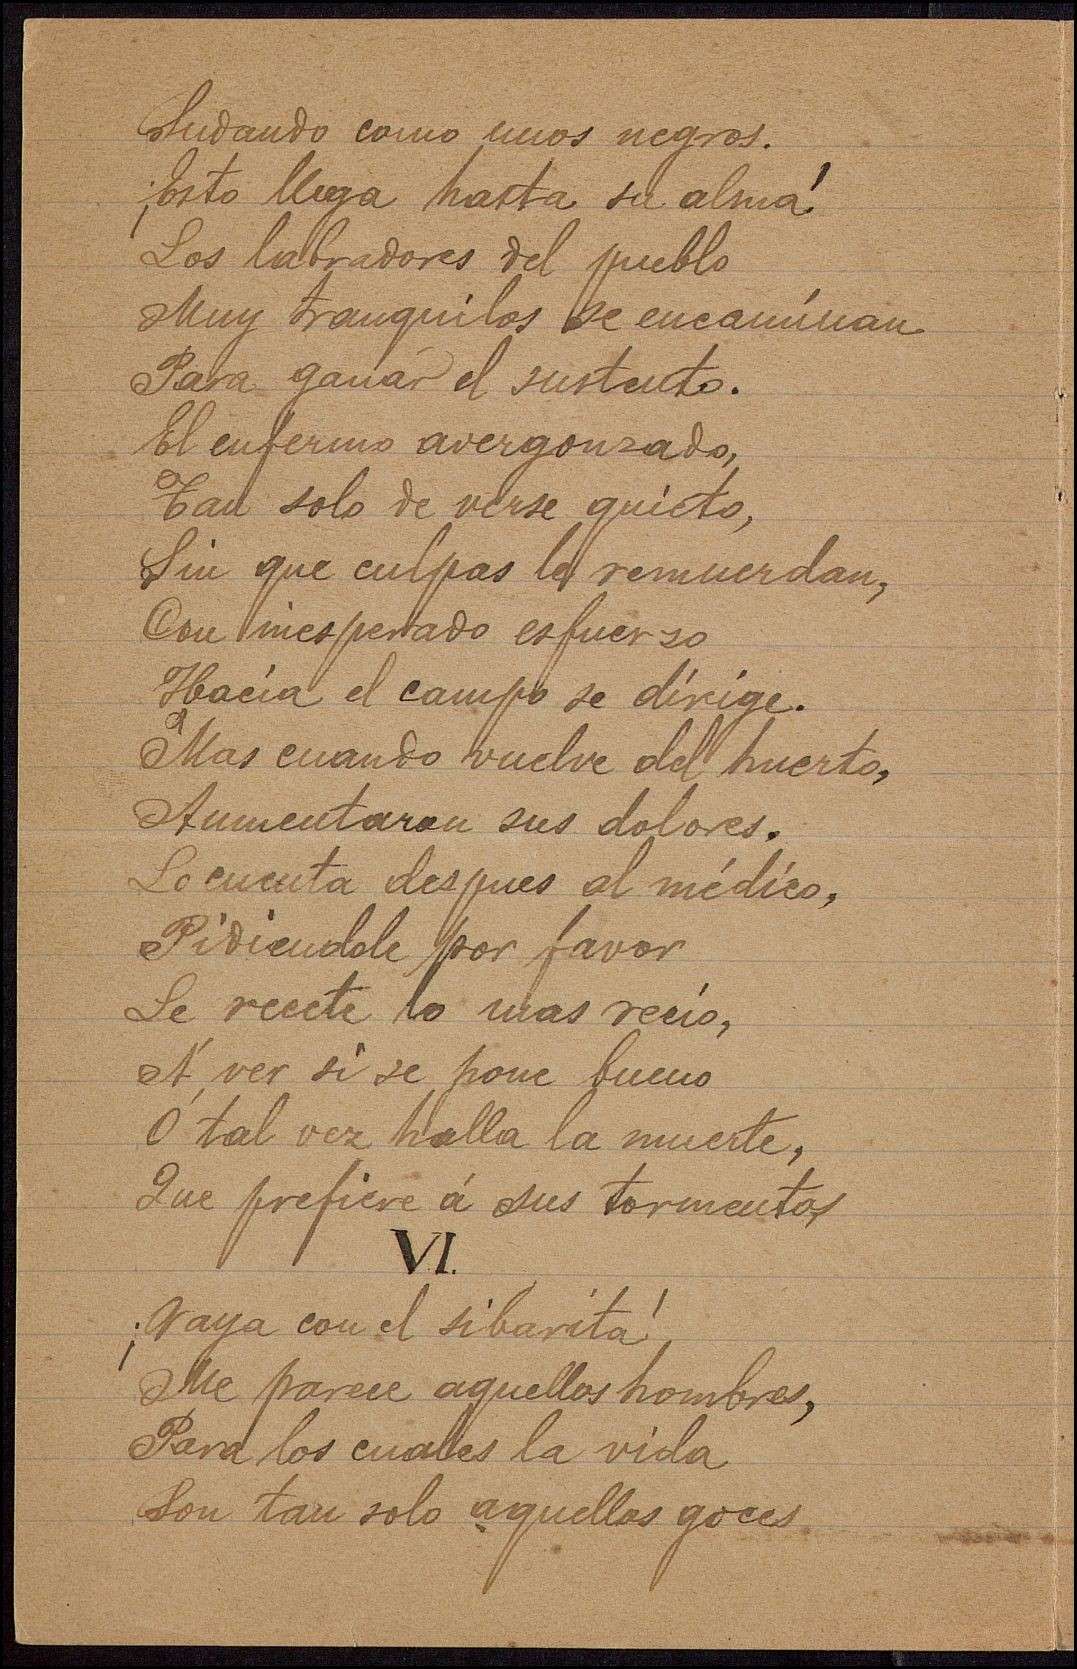 Sudando como unos negros.
¡Esto llega hasta su alma!
Los labradores del pueblo
Muy tranquilos se encamínan
Para ganar el sustento.
El enfermo avergonzado,
Tan solo de verse quieto,
Sin que culpas le remuerdan,
Con inesperado esfuerzo
Hacía el campo se dírige.
Mas cuando vuelve del huerto,
Aumentaron sus dolores.
Lo cuenta despues al médico,
Pidiendole por favor
Le recete lo mas recío,
Á ver si se pone bueno
Ó tal vez halla la muerte,
Que prefiere á sus tormentos
VI.
¡Vaya con el sibarita!
Me parece aquellos hombres,
Para los cuales la vida
Son tan solo aquellos goces